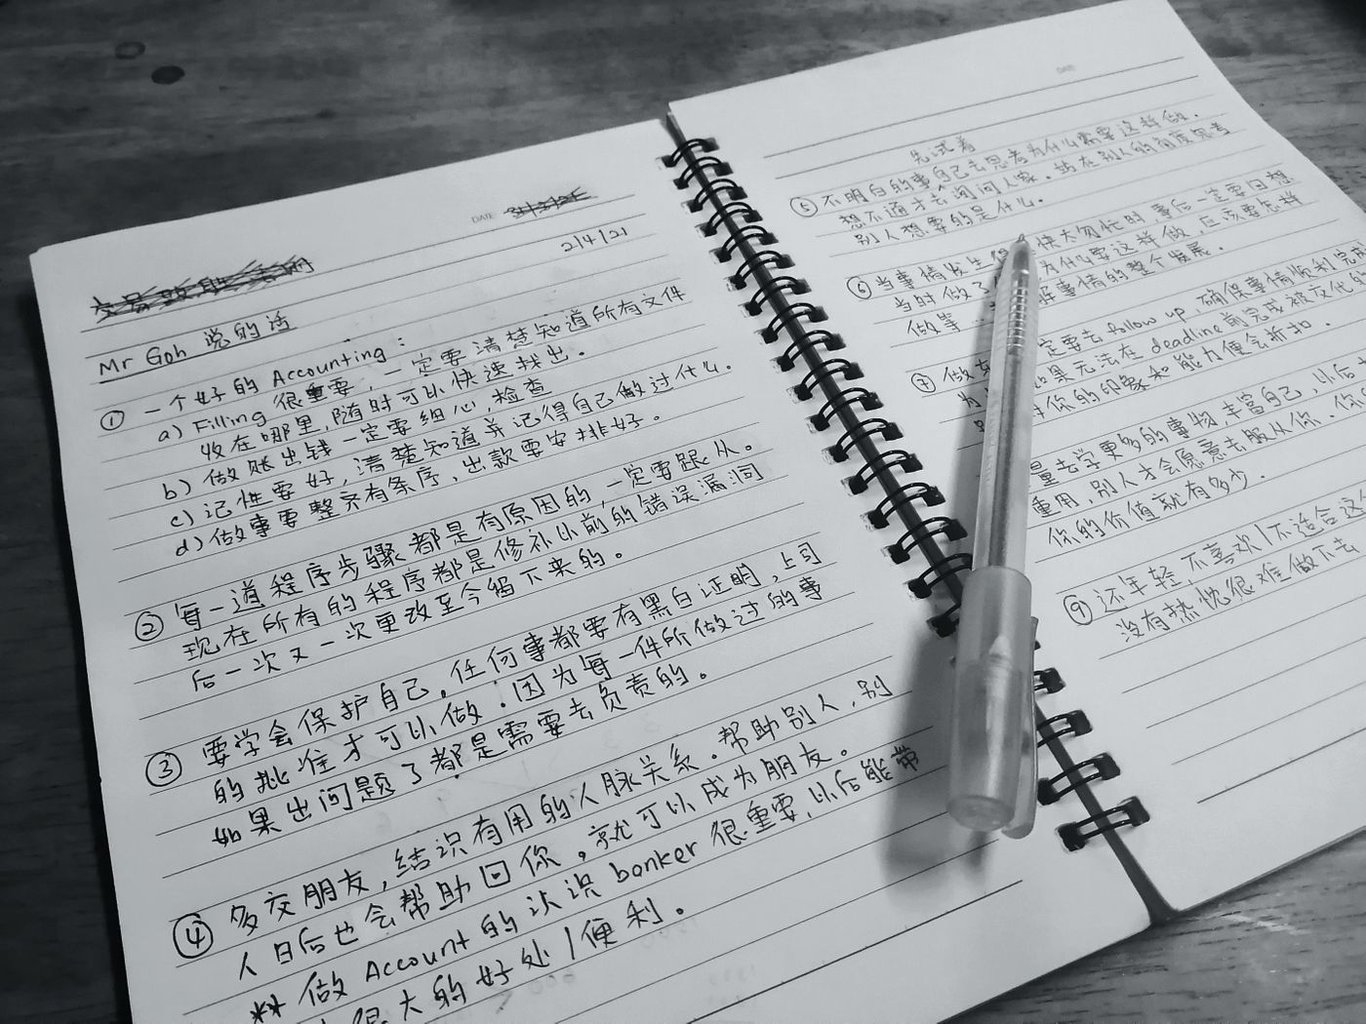 DATE
2/4/21
Mr Goh 说的话
① 一个好的 Accounting :
a) Filling 很重要，一定要清楚知道所有文件
收在哪里，随时可以快速找出。
b) 做账出钱一定要细心，检查
c) 记性要好，清楚知道并记得自己做过什么。
d) 做事要整齐有条序，出款要安排好。
② 每一道程序步骤都是有原因的，一定要跟从。
现在所有的程序都是修补以前的错误漏洞
后一次又一次更改至今留下来的。
③ 要学会保护自己，任何事都要有黑白证明，上司
的批准才可以做。因为每一件所做过的事
如果出问题了都是需要去负责的。
④ 多交朋友，结识有用的人脉关系。帮助别人，别
人日后也会帮助回你，就可以成为朋友。
** 做 Account 的认识 banker 很重要，以后能带
很大的好处/便利。
DATE
先试着
⑤ 不明白的事自己去思考为什么需要这样做。
想不通才去询问人家。站在别人的角度思考
别人想要的是什么。
⑥ 当事情发生 快太匆忙时 事后一定要回想
当时做了 为什么要这样做，应该要怎样
做等 解事情的整个发展。
⑦ 做 定要去 follow up，确保事情顺利完成
如果无法在 deadline 前完成被交代的
对你的印象和能力便会折扣。
量去学更多的事物，丰富自己，以后
重用，别人才会愿意去服从你。你
你的价值就有多少。
⑨ 还年轻，不喜欢/不适合这
没有热忱很难做下去